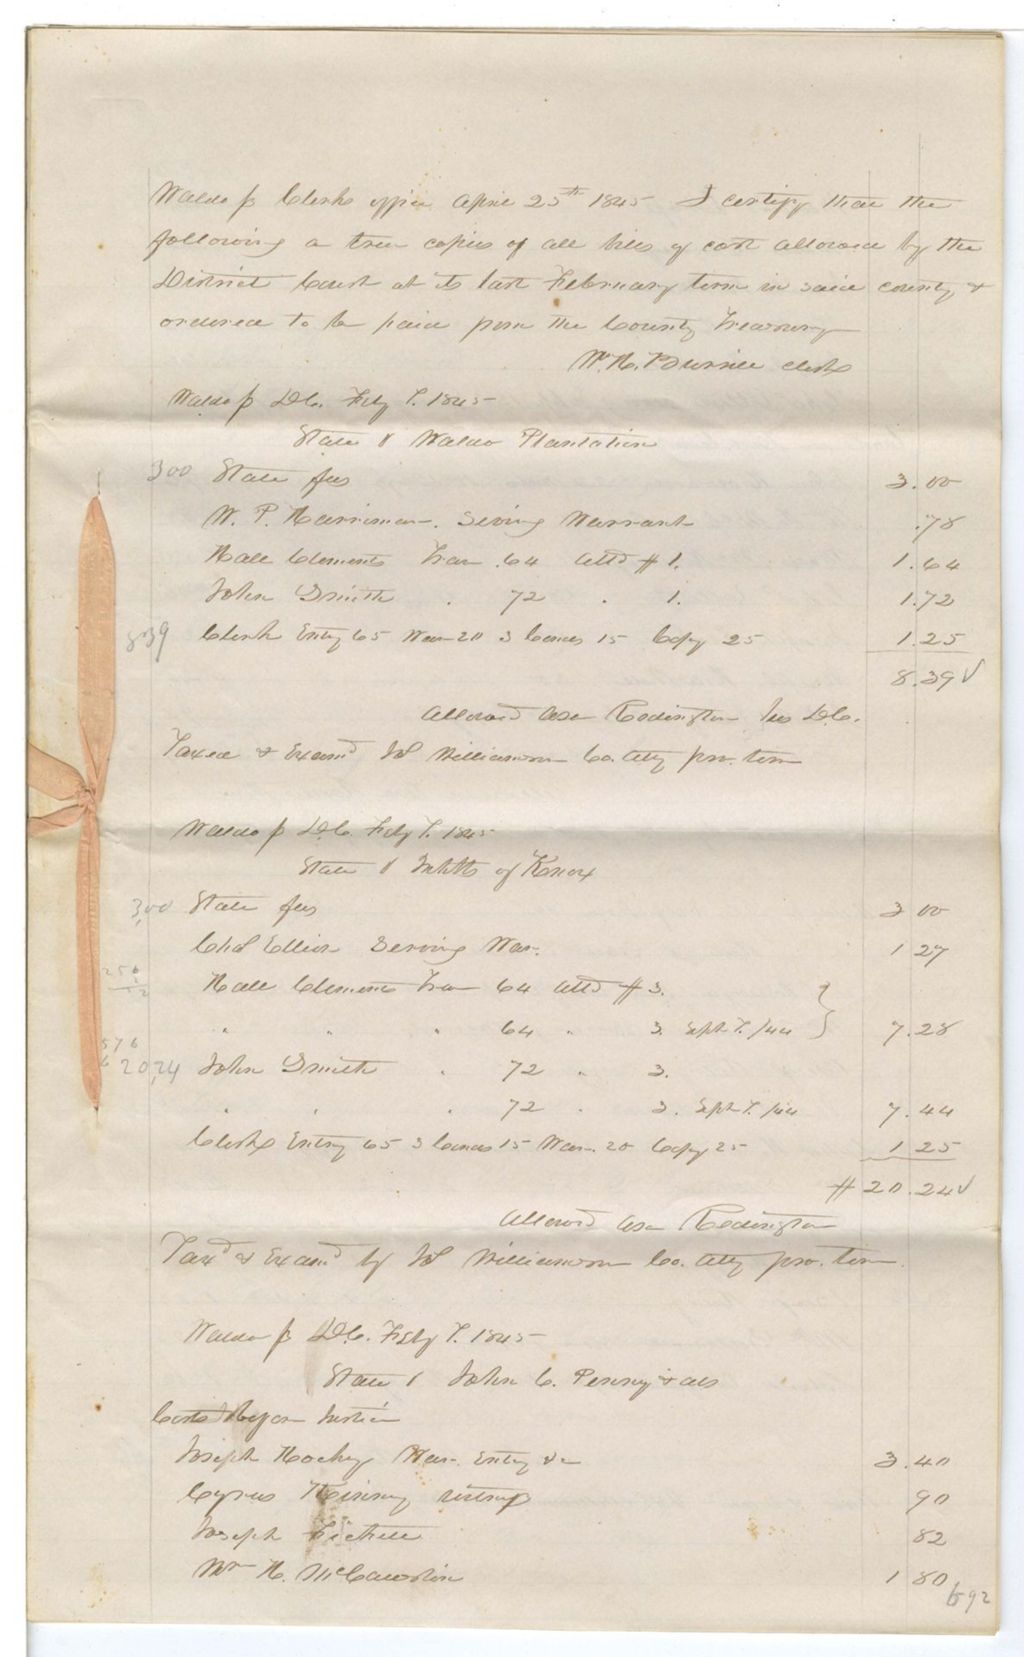 Waldo ss Clerks office April 25th 1845 I certify that the
following are true copies of all bills of cost allowed by the
District Court at its last February term in said county &
ordered to be paid from the County Treasury
Wm H. Burrill clerk
Waldo ss D.C. Feby T. 1845
State v Waldo Plantation
300 State fees 3.00
W. P. Harriman. Serving Warrant .78
Hale Clements Trav. 64 attd # 1. 1.64
John Smith . 72 . 1. 1.72
839 Clerk Entry 65 War 20 3 Conas 15 Copy 25 1.25
8.39 √
Allowed Asa Redington Jus D.C.
Taxed & Examd J Williamson Co. Atty pro. tem
Waldo ss D.C. Feby T. 1845
State v Inhts of Knox
3,00 State fees 3 00
Chs Elliot Serving War. 1 27
Hale Clements Trav 64 attd # 3. }
" " " 64 " 3. Sept T. /44 7.28
20,24 John Smith . 72 " 3.
" " " 72 " 3. Sept T. /44 7.44
Clerks Entry 65 3 Conas 15 War. 20 Copy 25 1 25
# 20.24 √
Allowd Asa Redington
Taxd & Examd by J Williamson Co. Atty pro. tem.
Waldo ss D.C. Feby T. 1845
State v John C. Penny & als
Costs Before Justice
Joseph Hockey War. Entry &c 3.40
Cyrus 90
Joseph 82
Wm H. McCauslin 1 80
6 92